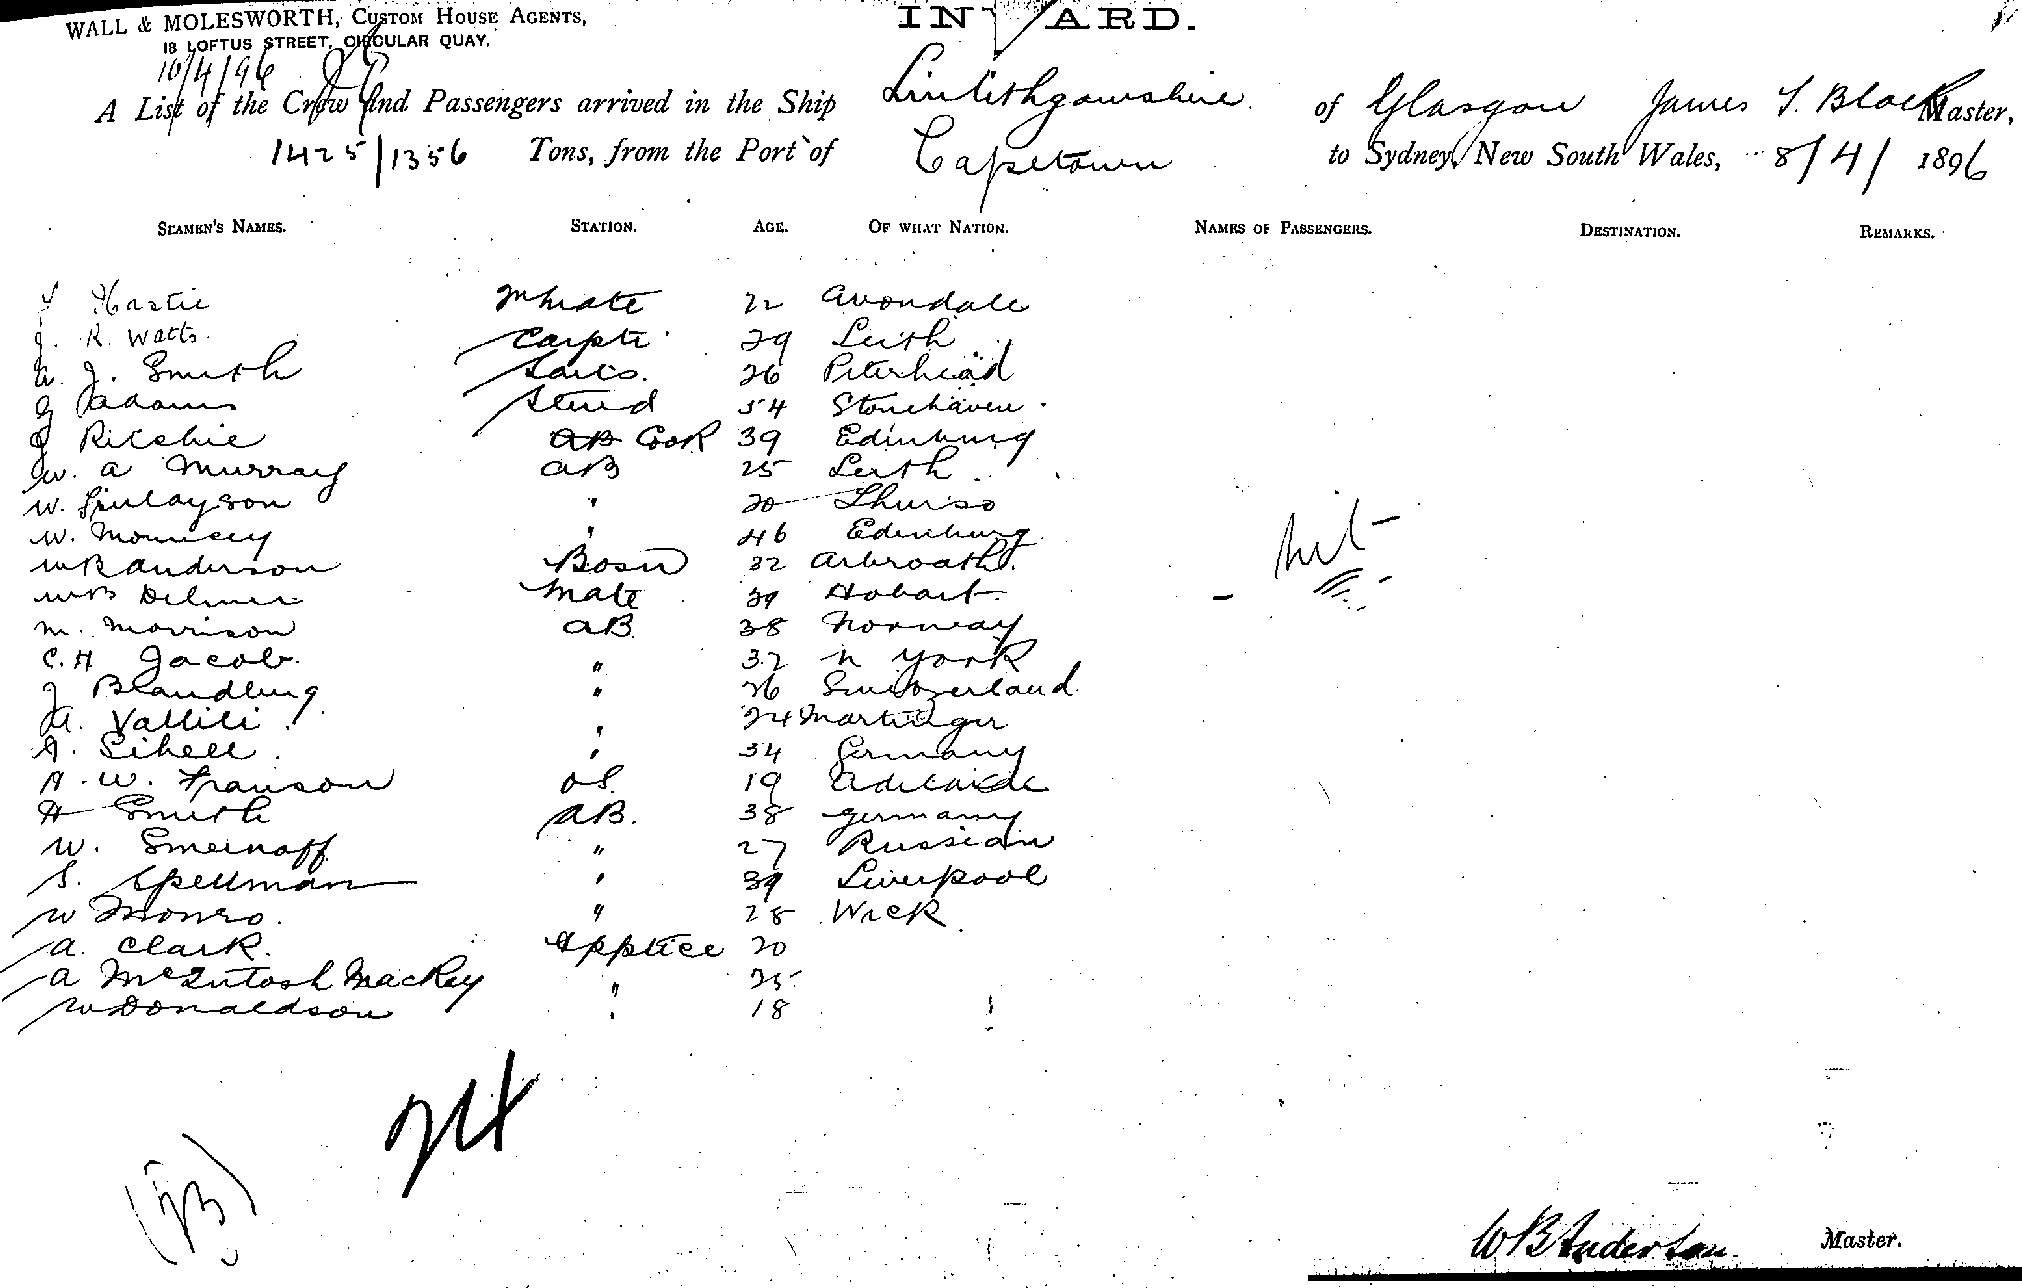 WALL & MOLESWORTH, CUSTOM HOUSE AGENTS,
18 LOFTUS STREET, CIRCULAR QUAY.
INWARD.
10/4/96
A List of the Crew and Passengers arrived in the Ship Linlithgowshire of Glasgow James S. Black Master,
1425/1356 Tons, from the Port of Capetown to Sydney, New South Wales, 8/4/ 1896
SEAMEN'S NAMES. STATION. AGE. OF WHAT NATION. NAMES OF PASSENGERS. DESTINATION. REMARKS.
Hastie mate 22 Avondale
J. R. Watts. Carptr 29 Leith
A. J. Smith Sails. 26 Peterhead
J Adams Stewd 54 Stonehaven.
J Ritchie AB Cook 39 Edinburg
W. A Murray AB 25 Leith
W. Finlayson " 20 Thurso
W. 46 Edinburg
W B Anderson Bosn 32 Arbroath.
W B Mate 39 Hobart.
M. Morrison AB 38 Norway
C. H Jacob. " 32 N York
J " 26 Switzerland
A. " 24
A. " 34 Germany
H. W. Franson OS. 19 Adelaide
H Smith AB. 38 Germany
W. Smeinoff " 27 Russian
S. Spellman " 39 Liverpool
W Monro. " 28 Wick
A. Clark. Apptice 20
A McIntosh Mackey " 25
W Donaldson " 18
Nil
24
(23)
WB Anderson Master.